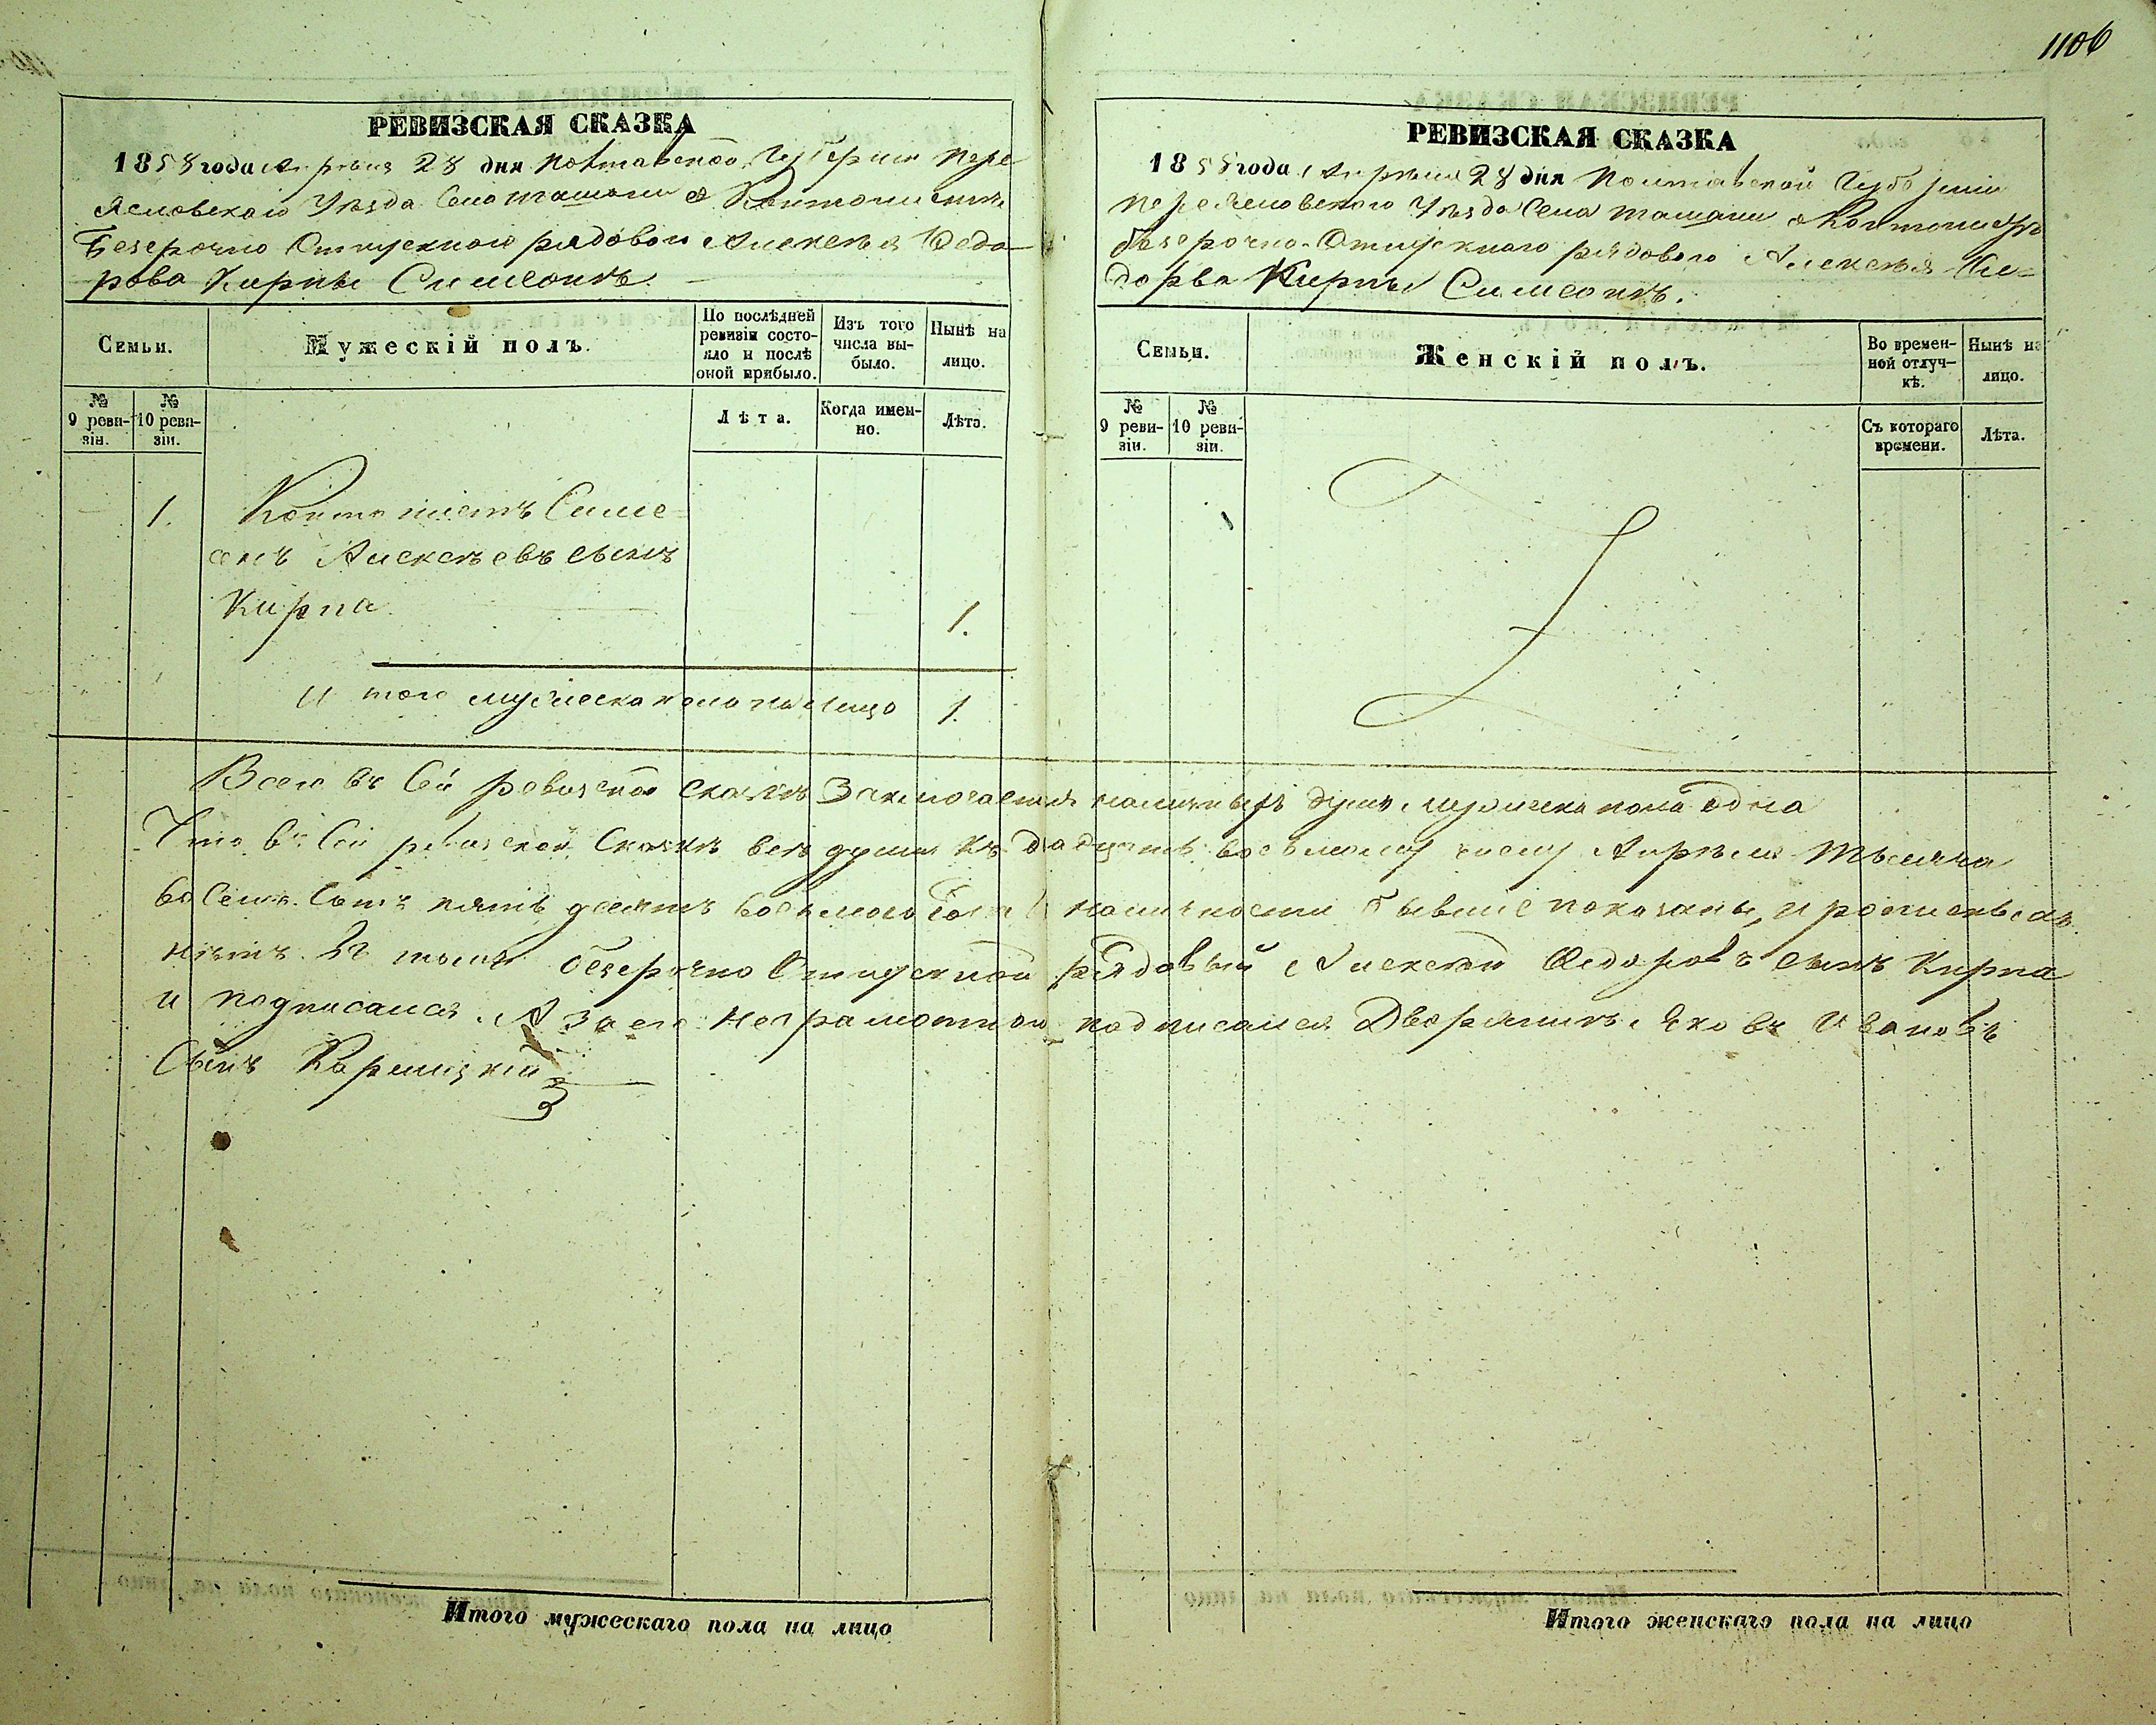 1106
РЕВИЗСКАЯ СКАЗКА
1858 года Апреля 28 дня Полтавской Губернии Пере
яславскаго Уезда Села Ташани о Кантонисте
Безсрочно Отпускного рядового Алексея Федо-
рова Кирпы Симеонъ.
Семьи.
Мужескій полъ.
По послѣдней ревизіи состо-яло и послѣ оной прибыло.
Изъ того числа вы-было.
Нынѣ на лицо.
№ 9 реви-зіи.
№ 10 реви-зіи.
Лѣта.
Когда имен-но.
Лѣта.
1. Контонистъ Симе-
онъ Алексѣевъ сынъ
Кирпа. 1.
И того мужеска пола на лицо 1.
РЕВИЗСКАЯ СКАЗКА
1858 года Апреля 28 дня Полтавской Губернии
Переяславского Уезда Села Ташани о Кантонистѣ
безсрочно-Отпускнаго рядового Алексѣя Фе-
дорва Кирпы Симеонъ.
Семьи.
Женскій полъ.
Во времен-ной отлуч-кѣ.
Нынѣ на лицо.
№ 9 реви-зіи.
№ 10 реви-зіи.
Съ котораго времени.
Лѣта.
Всего въ Сей ревизской сказкѣ Заключается наличныхъ душъ мужеска пола одна
Что въ Сей ревизской Сказкѣ все души къ двадцать восьмому числу Апрѣля Тысяча
восемь Сотъ пять десятъ восьмого Года в наличности бывшие показаны, и прописныхъ
нѣтъ. В томъ безсрочно Отпускной рядовый Алексѣй Федоровъ сынъ Кирпа
и подписался. А за его неграмотного подписался Дворянинъ Яковъ Ивановъ
Сынъ Кармицкий
Итого мужескаго пола на лицо
Итого женскаго пола на лицо